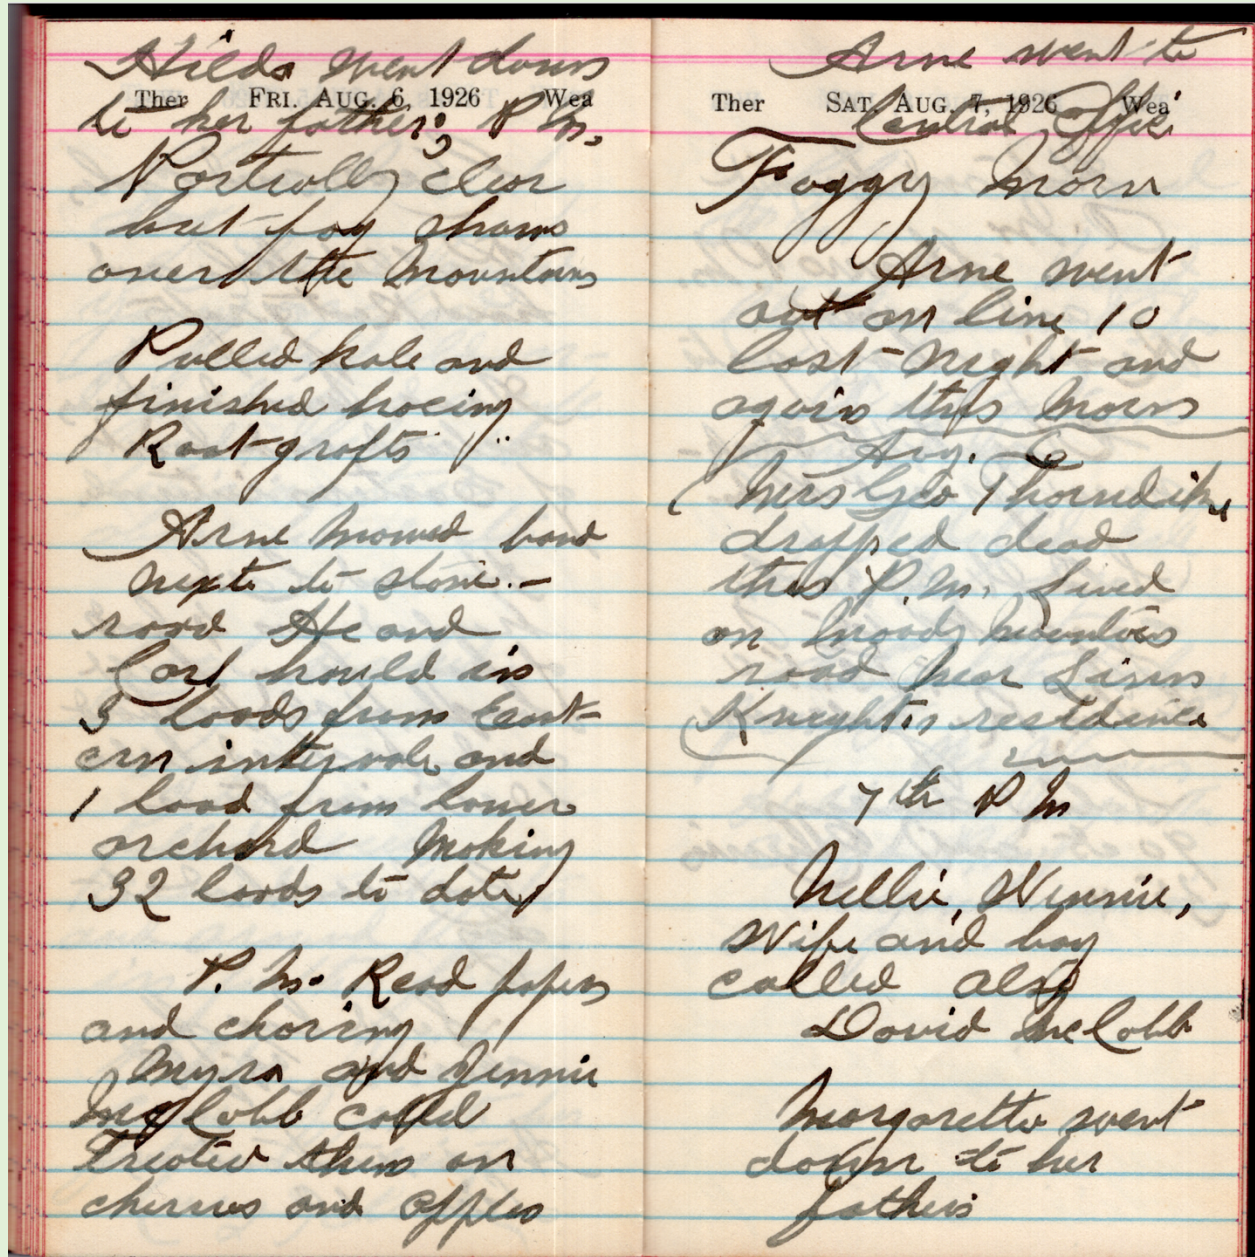 Hilda went down
Ther FRI. AUG. 6 1926 Wea
to her father's P.M.
Partially clear
but fog hangs
over the Mountains
Pulled kale and
finished hoeing
Root grafts
Arne mowed
next to stone
road He and
Carl hauled in
3 loads from East-
ern intervale and
1 load from lower
orchard Making
32 loads to date
P.M. Read papers
and choring
Myra and Jennie
McCobb called
Treated them on
cherries and apples
Arne went to
Ther SAT. AUG. 7, 1926 Wea
Central Office
Foggy Morn
Arne went
out on line 10
last night and
again this Morn
Aug. 6
Mrs Geo Thorndike
dropped dead
this P.M. Lived
on Moody Mountain
road near
Knights residence
7th P M
Nellie, Winnie,
Wife and boy
called also
David McCobb
Margarette went
down to her
fathers